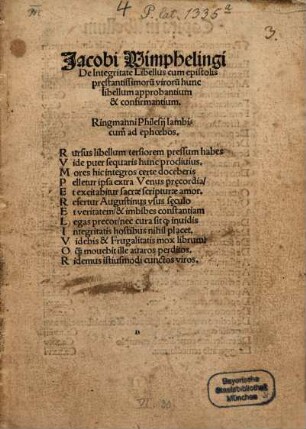 4 P. lat. 1335ª
3.
Jacobi Wimphelingi
De Integritate Libellus cum epistolis
prestantissimorū virorū hunc
libellum approbantium
& confirmantium.
Ringmanni Philesij Iambi,
cum ad ephœbos.
Rursus libellum tersiorem pressum habes
Vide puer sequaris hunc procliuius,
Mores hic integros certe doceberis
Pelletur ipsa extra Venus precordia/
Et excitabitur sacræ scripturæ amor.
Refertur Augustinus vsus seculo
Et veritatem & imbibes constantiam
Legas precor/nec cura sit q̄ inuidis
Integritatis hostibus nihil placet.
Videbis & Frugalitatis mox librum
O q̄ mouebit ille auaros perditos.
Ridemus istiusmodi cunctos viros.
Bayerische
Staatsbibliothek
München